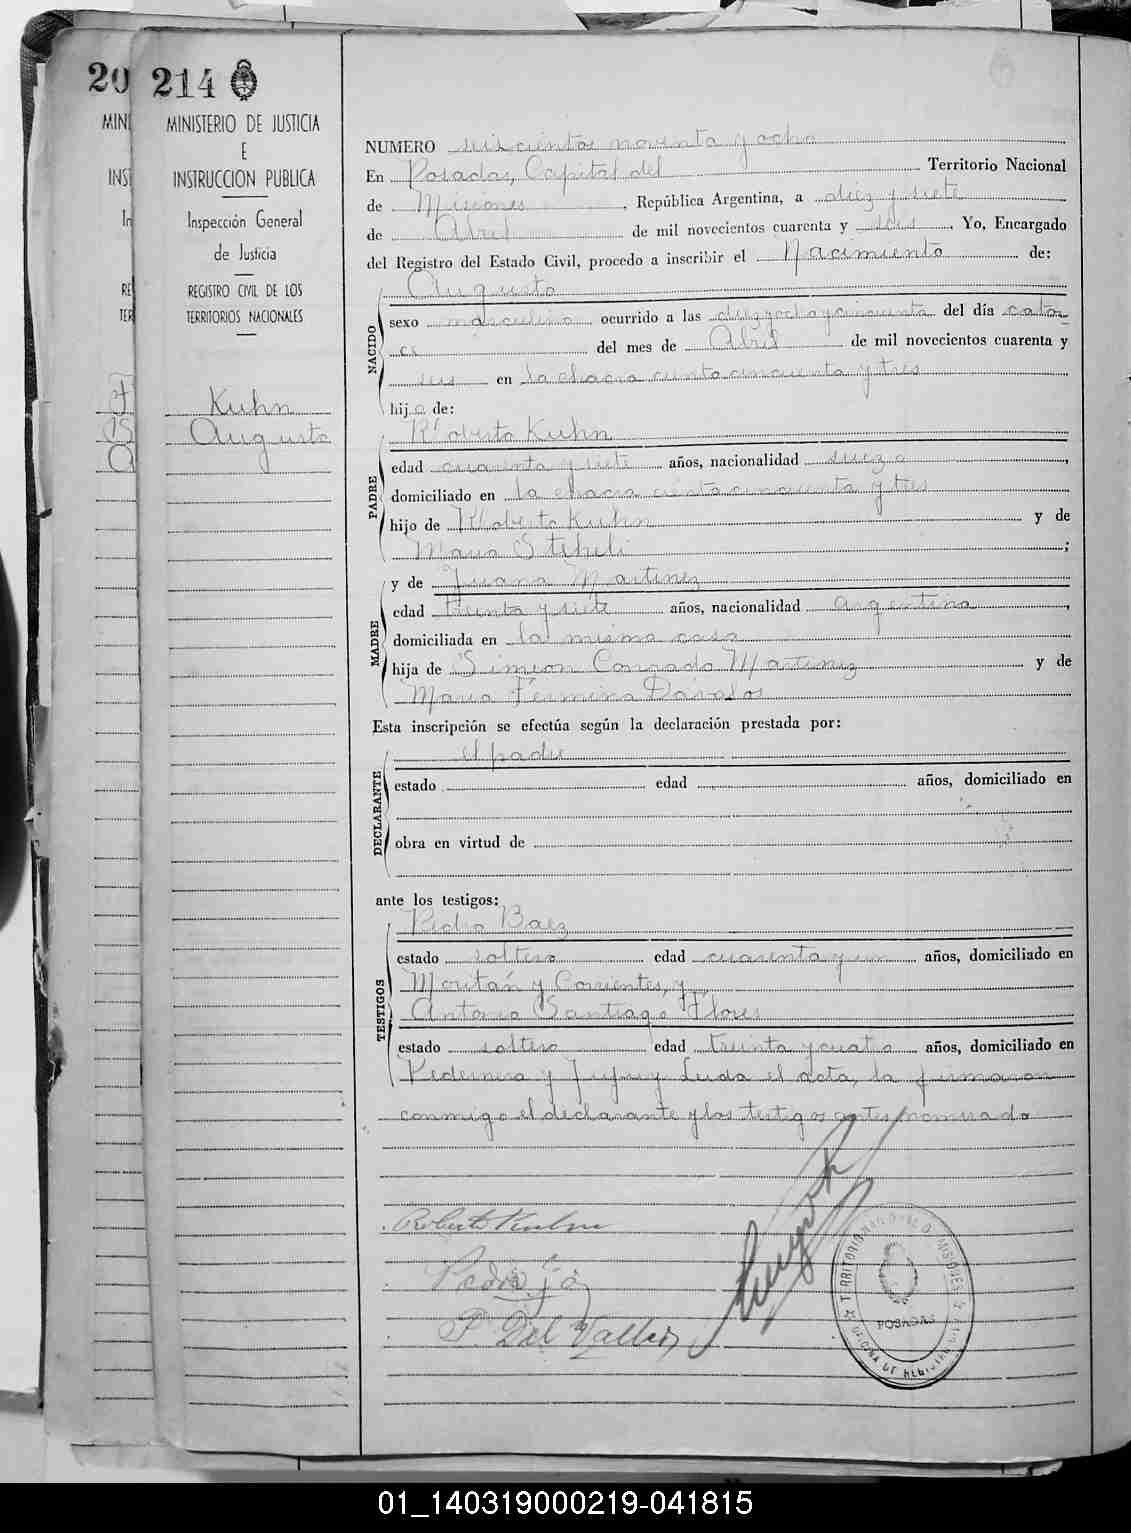 20
214
MINISTERIO DE JUSTICIA
E
INSTRUCCION PUBLICA
Inspección General
de Justicia
REGISTRO CIVIL DE LOS
TERRITORIOS NACIONALES
Kuhn
Augusto
NUMERO seiscientos noventa y ocho
En Posadas, Capital del Territorio Nacional
de Misiones, República Argentina, a diez y siete
de Abril de mil novecientos cuarenta y seis, Yo, Encargado
del Registro del Estado Civil, procedo a inscribir el Nacimiento de:
NACIDO
Augusto
sexo masculino ocurrido a las diez y ocho y cincuenta del día cator-
ce del mes de Abril de mil novecientos cuarenta y
seis en la chacra ciento cincuenta y tres
hijo de:
PADRE
Roberto Kuhn
edad cuarenta y siete años, nacionalidad suizo,
domiciliado en la chacra ciento cincuenta y tres
hijo de Roberto Kuhn y de
Maria Stiheli;
MADRE
y de Juana Martinez
edad treinta y siete años, nacionalidad argentina,
domiciliada en la misma casa
hija de Simeon Conrado Martinez y de
Maria Fermina Davalos
Esta inscripción se efectúa según la declaración prestada por:
DECLARANTE
el padre
estado edad años, domiciliado en
obra en virtud de
ante los testigos:
TESTIGOS
Pedro Baez
estado soltero edad cuarenta y un años, domiciliado en
Moritán y Corrientes, y
Antonio Santiago Flores
estado soltero edad treinta y cuatro años, domiciliado en
Pedernera y Jujuy Leida el acta, la firmaron
conmigo el declarante y los testigos antes nomerado
Roberto Kuhn
TERRITORIO NACIONAL DE MISIONES
POSADAS
01_140319000219-041815